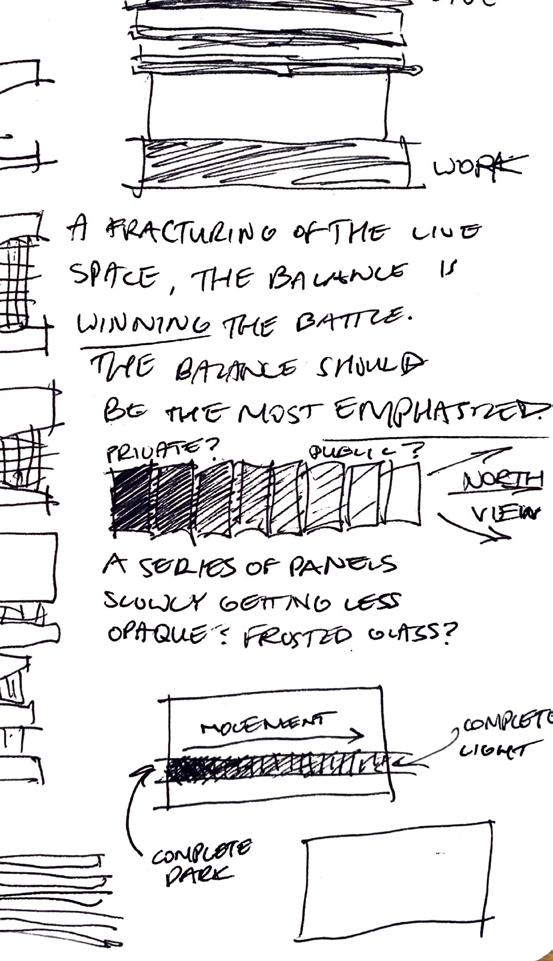 WORK
A FRACTURING OF THE LIVE
SPACE, THE BALANCE IS
WINNING THE BATTLE.
THE BALANCE SHOULD
BE THE MOST EMPHASIZED.
PRIVATE? PUBLIC?
NORTH
VIEW
A SERIES OF PANELS
SLOWLY GETTING LESS
OPAQUE? FROSTED GLASS?
MOVEMENT
COMPLETE
LIGHT
COMPLETE
DARK